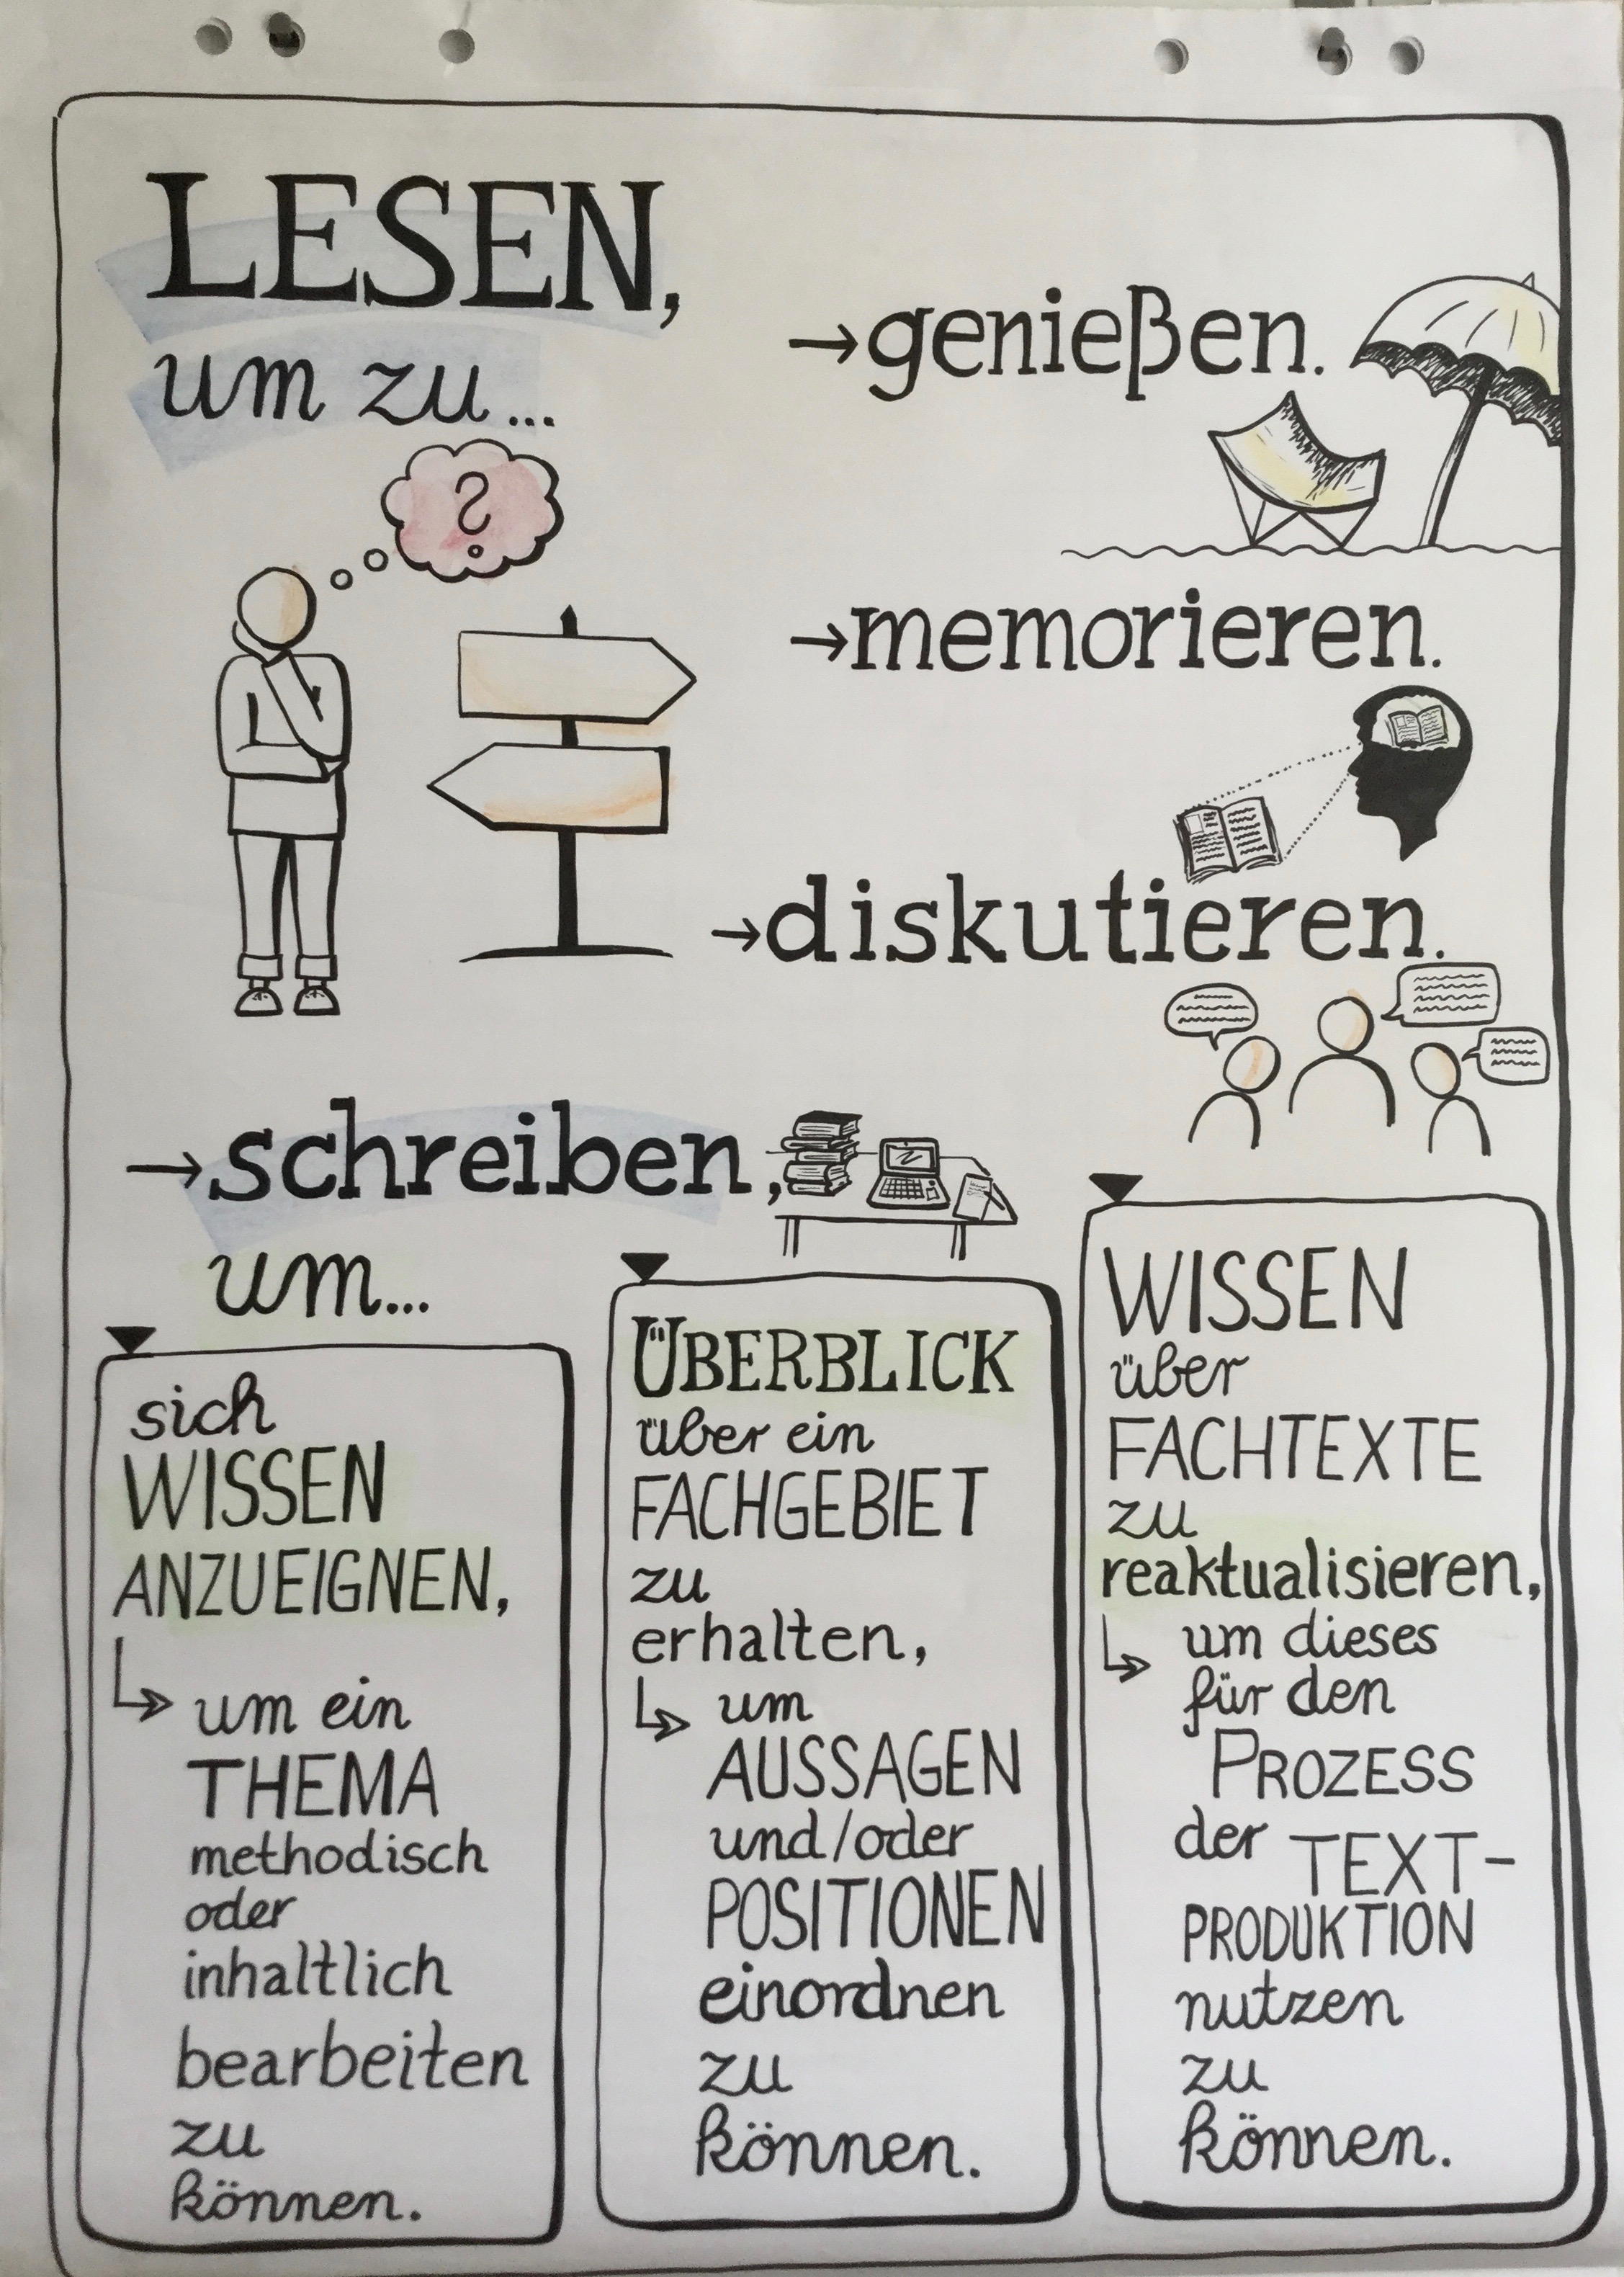 LESEN,
um zu...
?
→genießen.
→memorieren.
→diskutieren.
→schreiben,
um...
sich
WISSEN
ANZUEIGNEN,
↳ um ein
THEMA
methodisch
oder
inhaltlich
bearbeiten
zu
können.
ÜBERBLICK
über ein
FACHGEBIET
zu
erhalten,
↳ um
AUSSAGEN
und/oder
POSITIONEN
einordnen
zu
können.
WISSEN
über
FACHTEXTE
zu
reaktualisieren,
↳ um dieses
für den
PROZESS
der TEXT-
PRODUKTION
nutzen
zu
können.